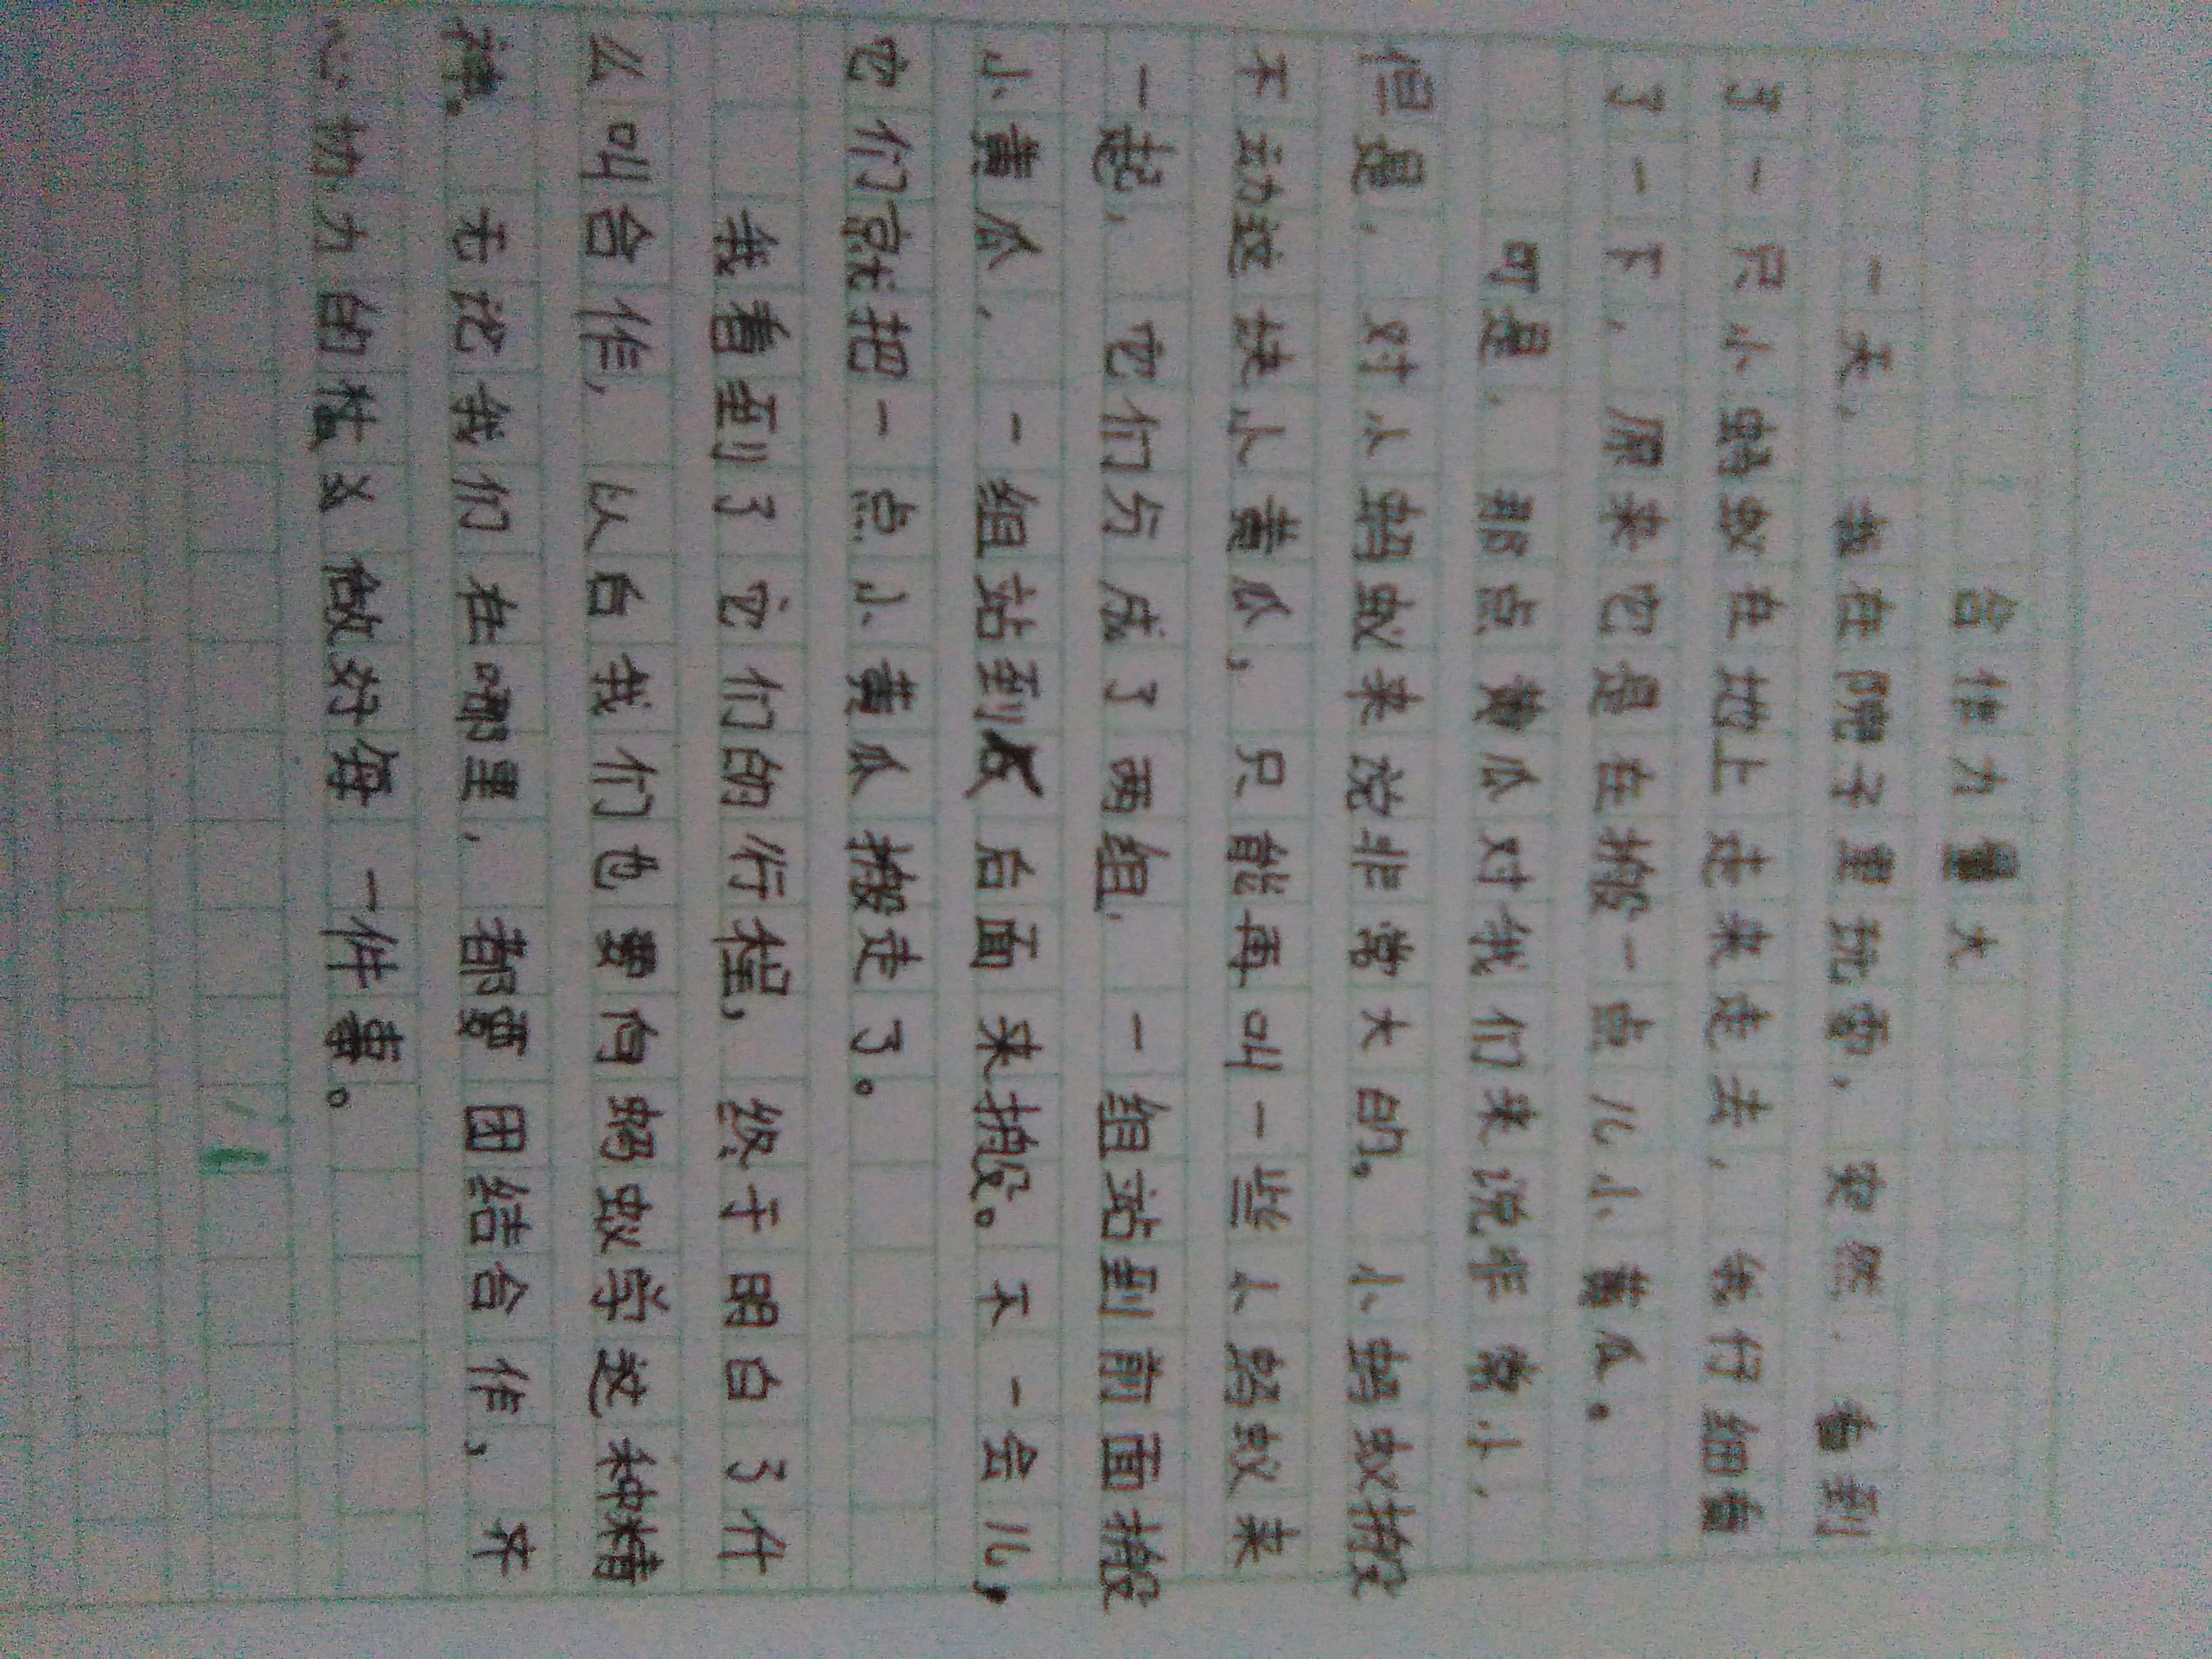 合作力量大
一天，我在院子里玩雪，突然，看到
了一只小蚂蚁在地上走来走去，我仔细看
了一下，原来它是在搬一点儿小黄瓜。
可是，那点黄瓜对我们来说非常小，
但是，对小蚂蚁来说非常大的。小蚂蚁搬
不动这块小黄瓜，只能再叫一些小蚂蚁来
一起，它们分成了两组，一组站到前面搬
小黄瓜，一组站到后面来搬。不一会儿，
它们就把一点小黄瓜搬走了。
我看到了它们的行程，终于明白了什
么叫合作，以后我们也要向蚂蚁学这种精
神，无论我们在哪里，都要团结合作，齐
心协力的去做好每一件事。